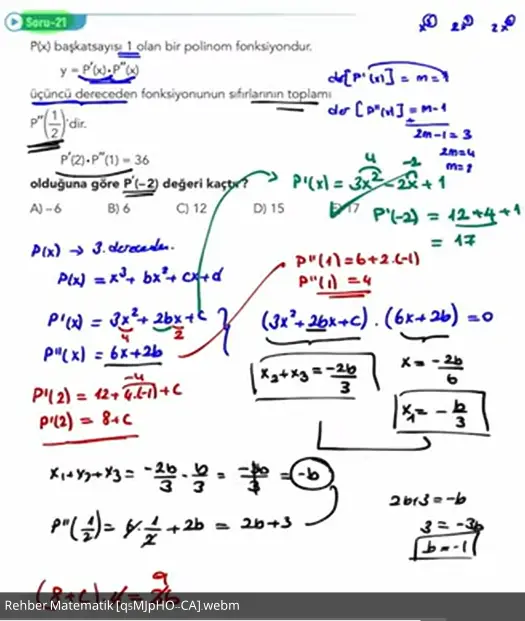 Soru-21
x⁶ 2x⁵ 2x⁵
P(x) başkatsayısı 1 olan bir polinom fonksiyondur.
y = P'(x).P''(x)
üçüncü dereceden fonksiyonunun sıfırlarının toplamı
P''(1/2)'dir.
P'(2).P''(1) = 36
olduğuna göre P'(-2) değeri kaçtır?
A) -6 B) 6 C) 12 D) 15 E) 17
der[P'(x)] = m
der[P''(x)] = m-1
2m-1=3
2m=4
m=2
P'(x) = 3x² - 2x + 1
4 -2
P'(-2) = 12+4+1
= 17
P(x) → 3. dereceden.
P(x) = x³ + bx² + cx + d
P'(x) = 3x² + 2bx + c
4 2
P''(x) = 6x + 2b
P''(1) = 6+2.(-1)
P''(1) = 4
(3x² + 2bx + c) . (6x + 2b) = 0
x₂ + x₃ = -2b/3
x = -2b/6
x₁ = -b/3
-4
P'(2) = 12 + 4.(-1) + c
P'(2) = 8 + c
x₁ + x₂ + x₃ = -2b/3 - b/3 = -3b/3 = -b
P''(1/2) = 6.1/2 + 2b = 2b+3
2b+3 = -b
3 = -3b
b = -1
9
(8+c).4 = 36
Rehber Matematik [qsMJpHO-CA].webm